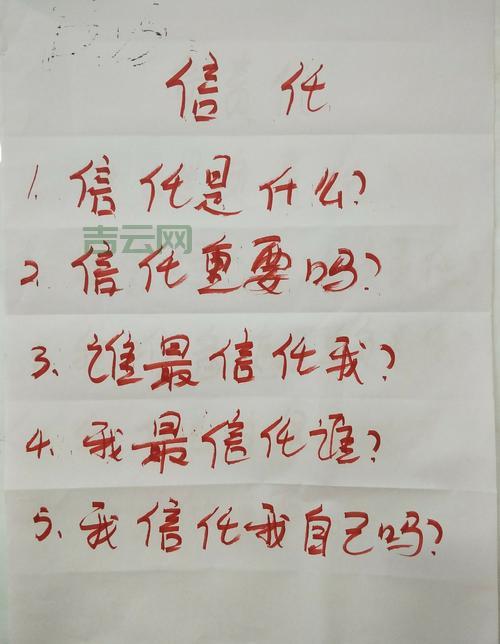 信 任
1. 信任是什么?
吉云网
2. 信任重要吗?
3、谁最信任我?
4、我最信任谁?
5、我信任我自己吗?